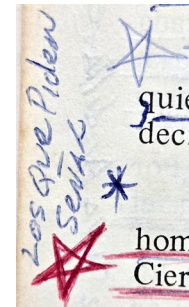 Los Que Piden
Señal
quie
dec
hom
Cier